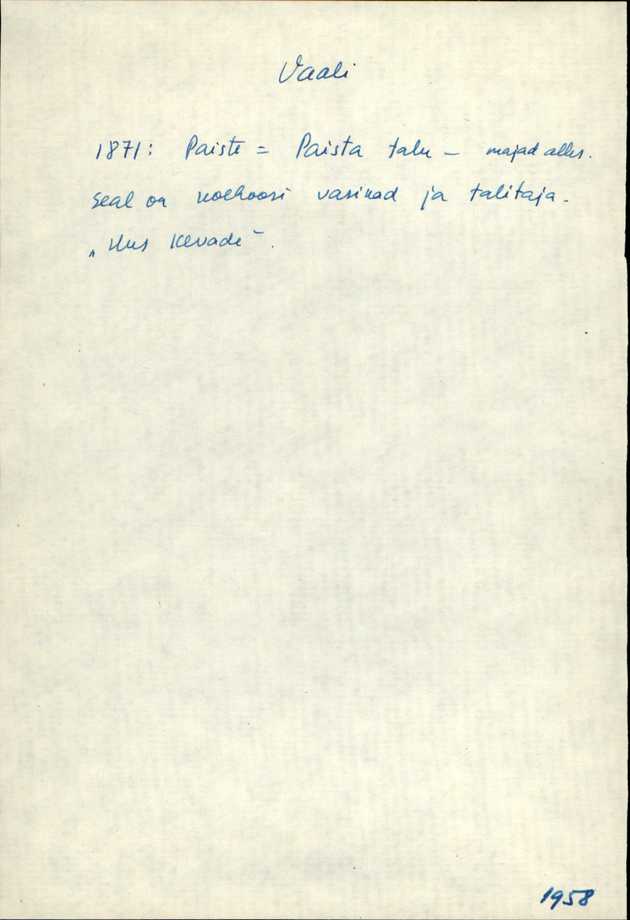 Vaali
1871: Paiste = Paista talu – majad alles.
Seal on kolhoosi vasikad ja talitaja.
„Uus Kevade".
1958